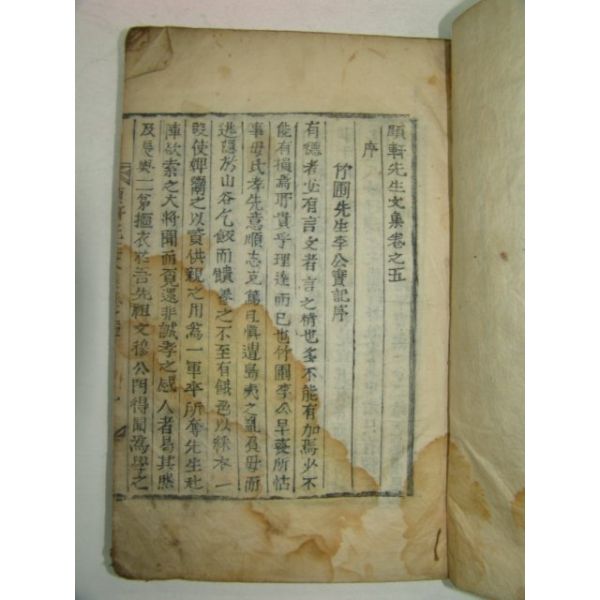 頤軒先生文集卷之五
序
竹圃先生李公實記序
有德者必有言文者言之精也多不能有加焉少不
能有損焉所貴乎理達而已也竹圃李公早喪所怙
事母氏孝先意順志克篤且愼遭島夷之亂負母而
逃隱於山谷乞飯而饋養之不至有餓色以綵衣一
使婢鬻之以資供親之用爲一軍卒所奪先生赴
陣欲索之大將聞而覓還非誠孝之感人者曷其然
及長與二弟摳衣於吾先祖文穆公門得聞爲學之